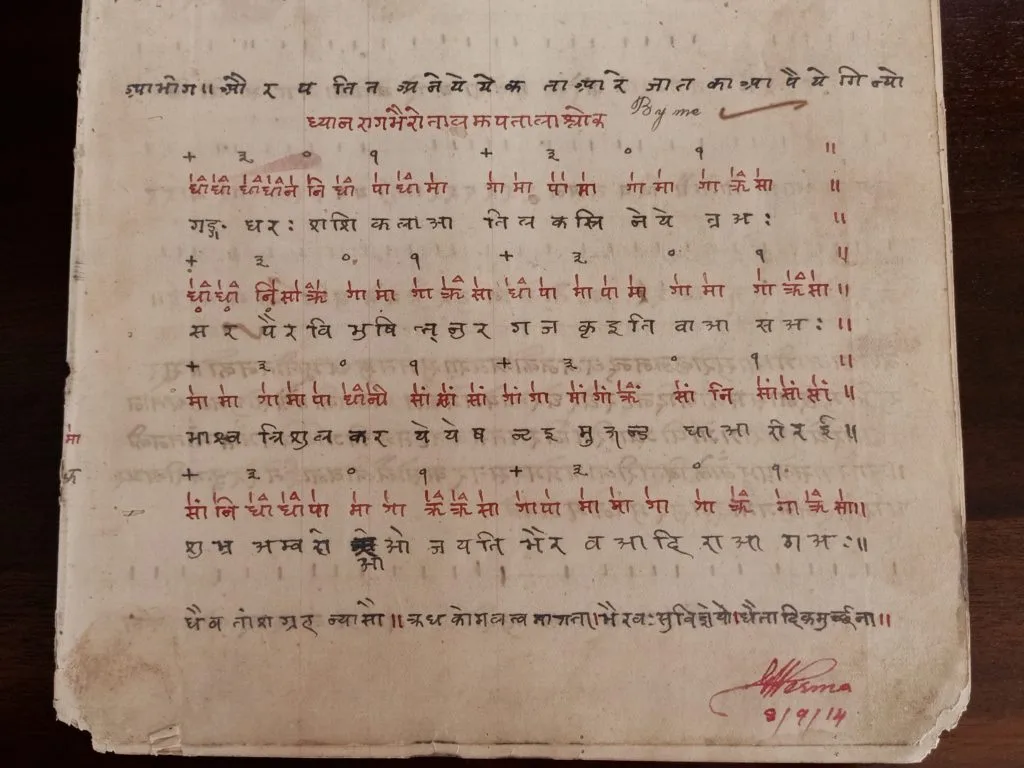 आभोग॥ और प ति त अ ने ये ये क ता आ रे जा त का आ पै ये गि न्यो
ध्यान राग भैरो ताल झपताला श्लोक By me
+ ३ ० १ + ३ ० १ ॥
धी धी धी धी न नि धी पा धी मा गा मा पा मा गा मा गा ऋ सा ॥
गङ्ग धरः शशि कलाआ तिल कस्त्रि नेये त्रअः ॥
+ ३ ० १ + ३ ० १ ॥
धी धी नि सा ऋ गा मा गा ऋ सा धी पा मा पा मा गा मा गा ऋ सा ॥
स र पै र वि भुषि त् नु र ग ज कृ इ ति वा आ स अः ॥
+ ३ ० १ + ३ ० १ ॥
मा मा गा मा पा धी नी सां सां सां गां गा मां गां ऋं सां नि सां सां सां ॥
भास्व त्रिशुल कर ये ये ष न्ट इ मुन्ड धा आ री र ई ॥
+ ३ ० १ + ३ ० १
सां नि धी धी पा मा गा ऋ ऋ सा गा पा मा मा गा गा ऋ गा ऋ सा॥
शुभ्र अम्व रो ओ ज य ति भै र व आ दि रा आ ग अः॥
ओ
धैवतांश ग्रह न्यासौ॥ ऋध कोमलत्व मागता॥ भैरवः सुविज्ञेयो। धैतादिक मुर्च्छना॥
8/9/14
मा